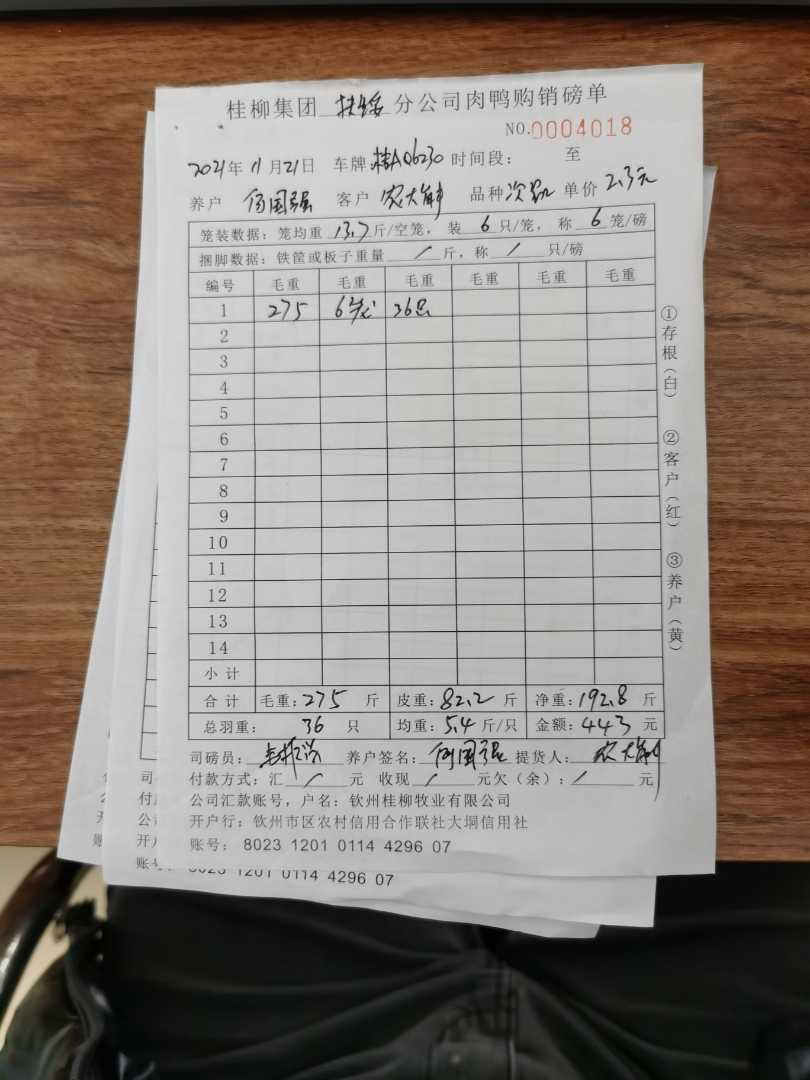 桂柳集团 扶绥 分公司肉鸭购销磅单
NO.0004018
2021年 11月21日 车牌 桂AQ6230 时间段： 至
养户 何国强 客户 农大 品种 次 单价 2.3元
笼装数据：笼均重 13.7 斤/空笼， 装 6 只/笼， 称 6 笼/磅
捆脚数据：铁筐或板子重量 / 斤，称 / 只/磅
编号 毛重 毛重 毛重 毛重 毛重 毛重
1 275 6笼 36只
2
3
4
5
6
7
8
9
10
11
12
13
14
小 计
合 计 毛重：275 斤 皮重：82.2 斤 净重：192.8 斤
总羽重： 36 只 均重：5.4 斤/只 金额：443 元
司磅员： 养户签名：何国强 提货人：农大
付款方式：汇 / 元 收现 / 元欠（余）：/ 元
公司汇款账号，户名：钦州桂柳牧业有限公司
开户行：钦州市区农村信用合作联社大垌信用社
账号： 8023 1201 0114 4296 07
①存根（白） ②客户（红） ③养户（黄）
司
付
公
开户
账号： 8023 1201 0114 4296 07